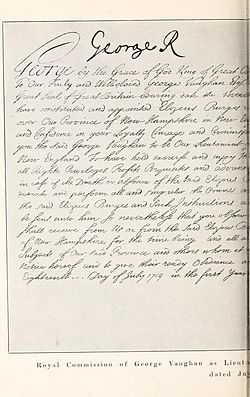 George R
George by the Grace of God King of Great
To Our Trusty and Welbeloved George Vaughan
Great Seal of Great Britain bearing date
have constituted and appointed Elizeus Burges
over Our Province of New Hampshire in New
and Confidence in your Loyalty Courage and
you the said George Vaughan to be Our Lieutenant
New England To have hold exercise and enjoy
all Rights Priviledges Profits Perquisites and
in case of the Death or absence of the said Elizeus
exercise and perform all and singular the Powers
the said Elizeus Burges and Such Instructions as
be sent unto him So nevertheless that you
shall receive from Us or from the said Elizeus
of New Hampshire for the time being and all
Subjects of Our said Province and others whom
hereof and to give their ready Obedience
Eighteenth Day of July in the first Year
Royal Commission of George Vaughan as Lieut
dated